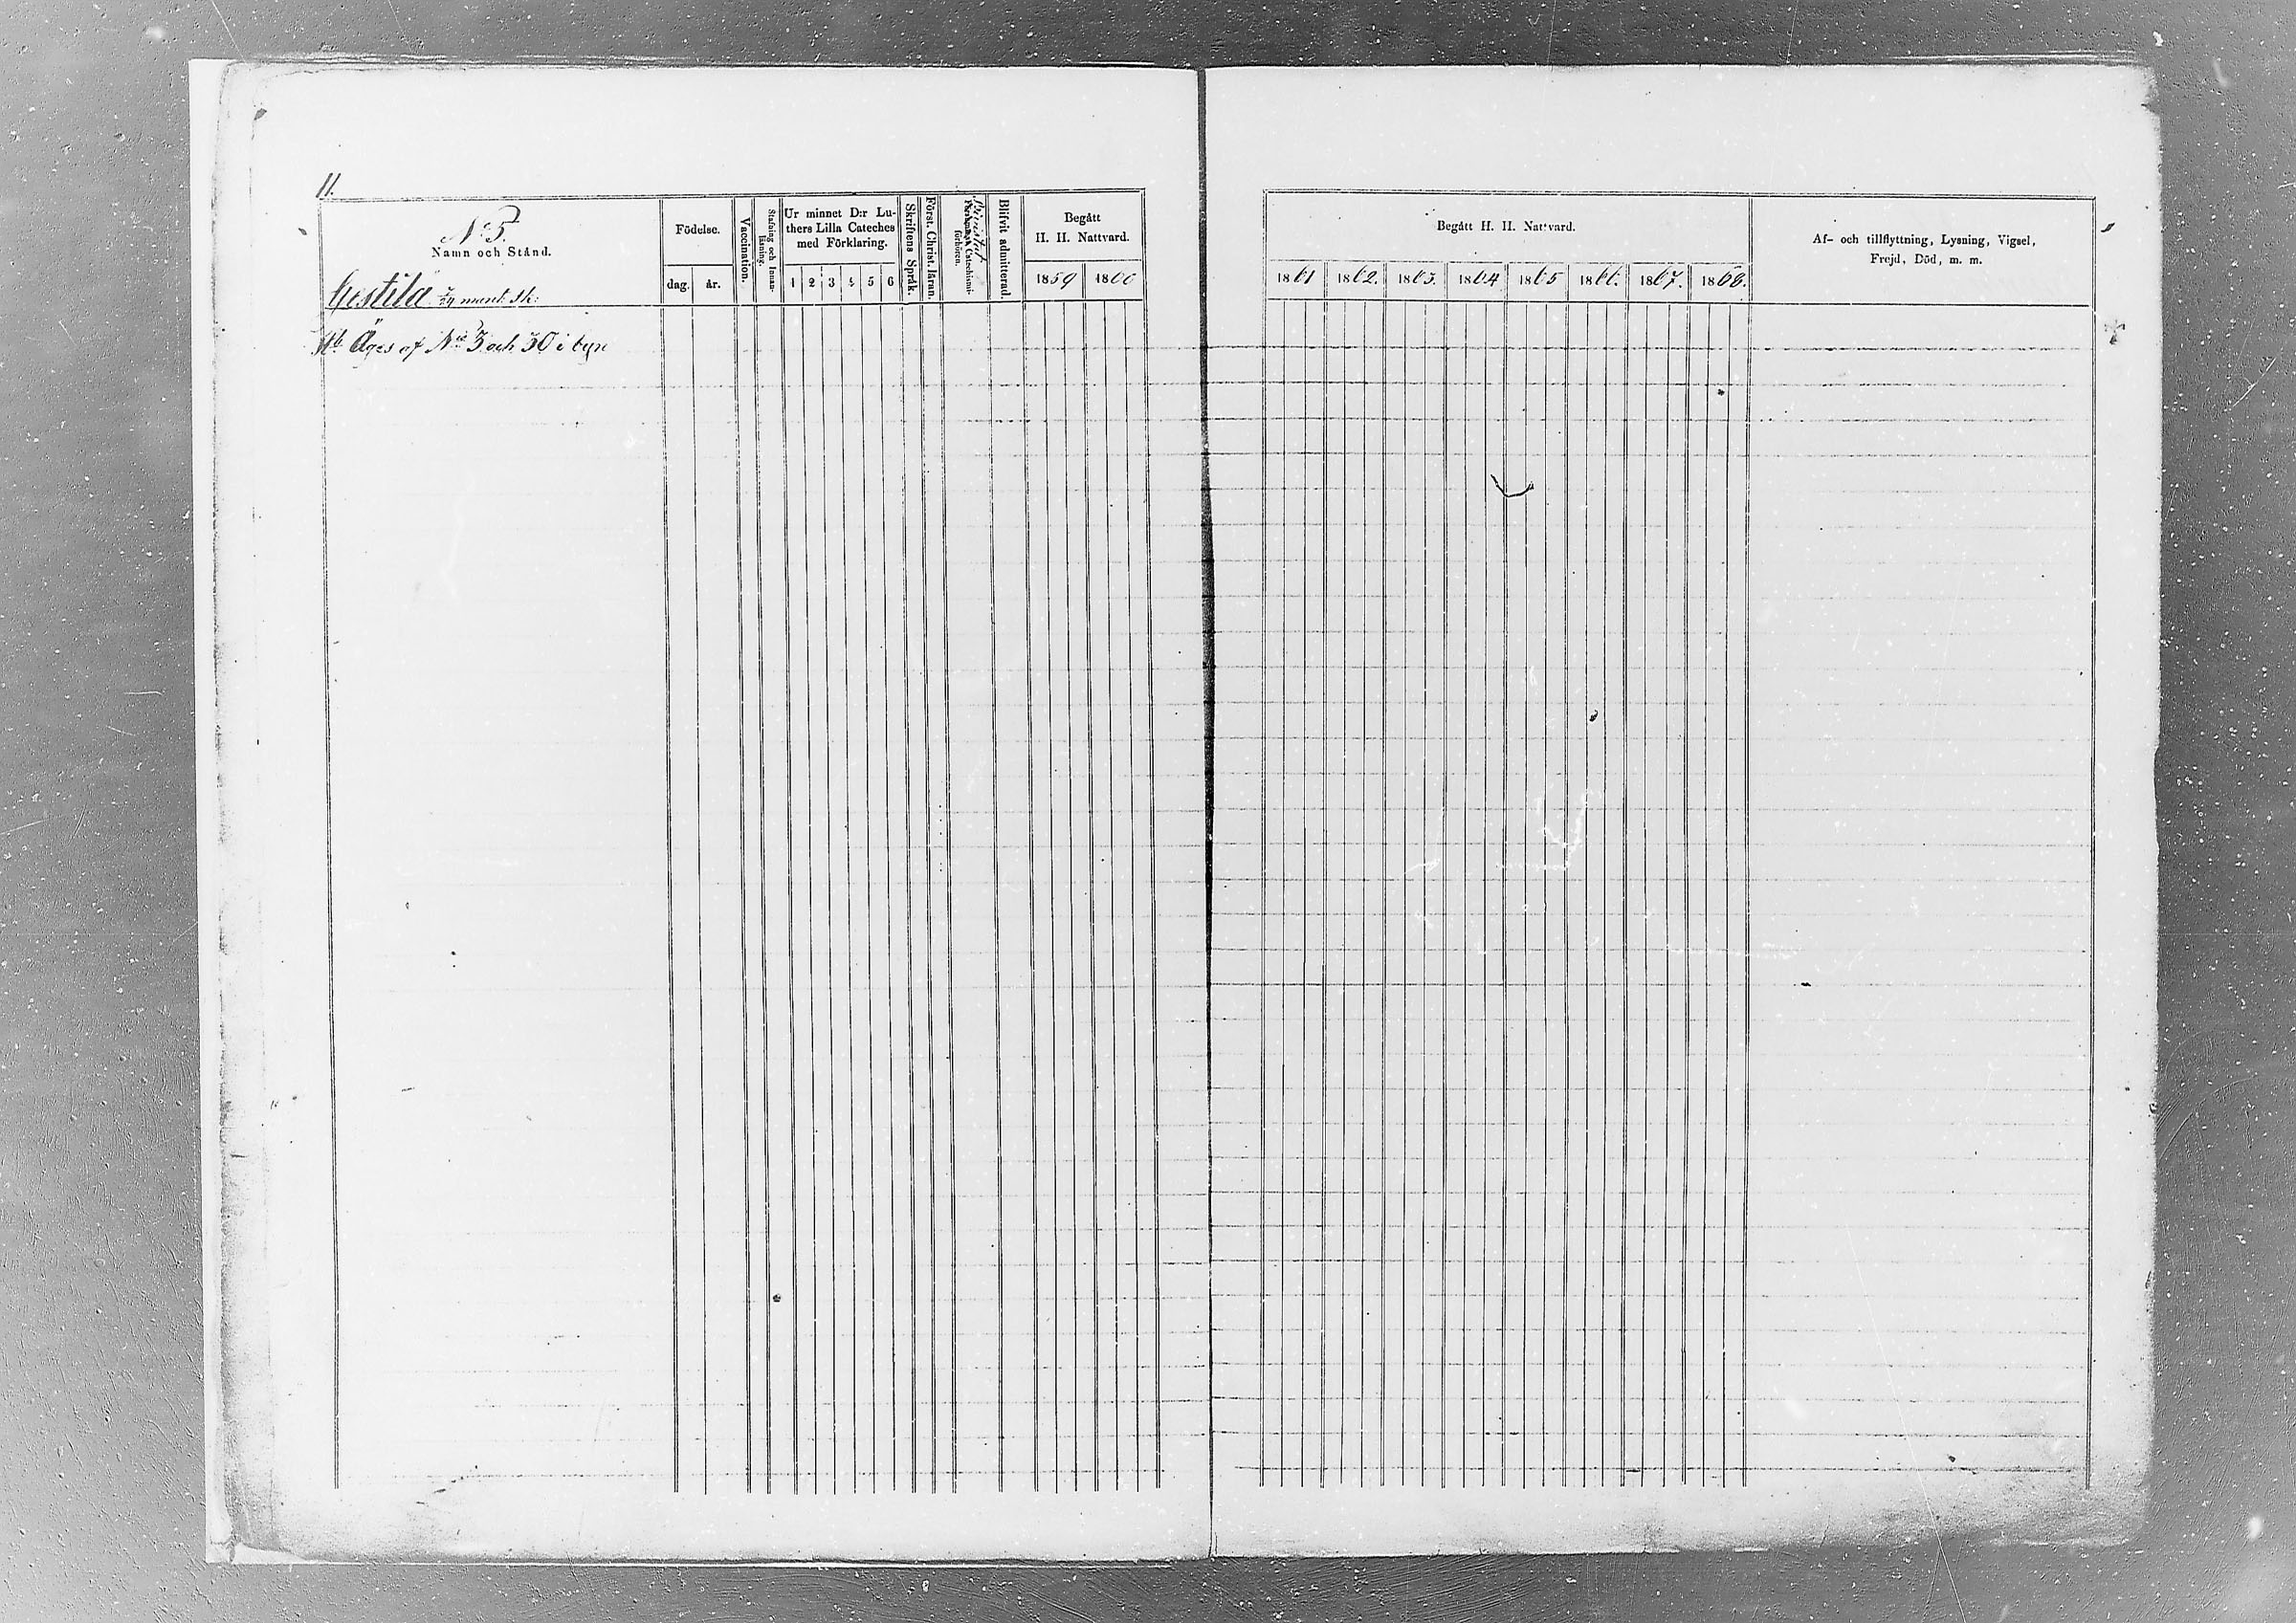 11.
N:o 5.
Namn och Stånd.
Gestilä mant. sk:
Födelse.
dag. år.
Vaccination.
Stafning och Innanläsning.
Ur minnet D:r Lu-
thers Lilla Cateches
med Förklaring.
1 2 3 4 5 6
Skriftens Språk.
Först. Christ. läran.
Catechismi-
förhören.
Blifvit admitterad.
Begått
H. H. Nattvard.
1859 1860
Äges af N:o 3 och 30 i byn
Begått H. H. Nattvard.
1861 1862. 1863. 1864 1865 1866. 1867. 1868.
Af- och tillflyttning, Lysning, Vigsel,
Frejd, Död, m. m.